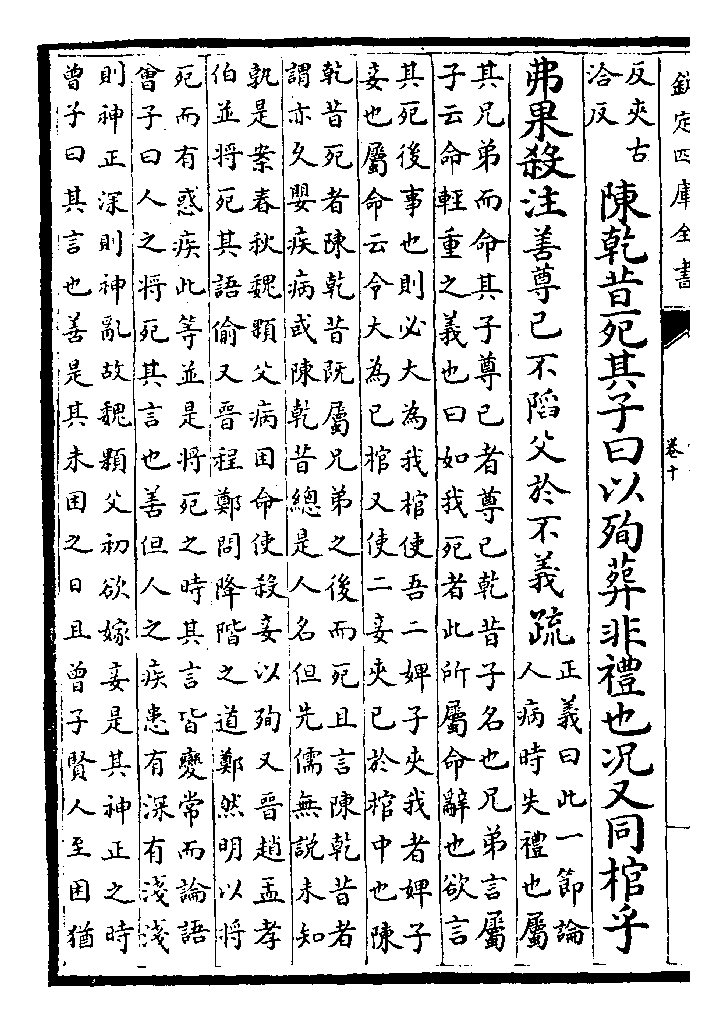 欽定四庫全書
卷十
反夾古
洽反
陳乾昔死其子曰以殉葬非禮也况又同棺乎
弗果殺注善尊已不陷父於不義疏
正義曰此一節論
人病時失禮也屬
其兄弟而命其子尊已者尊已乾昔子名也兄弟言屬
子云命輕重之義也曰如我死者此所屬命辭也欲言
其死後事也則必大為我棺使吾二婢子夾我者婢子
妾也屬命云令大為已棺又使二妾夾已於棺中也陳
乾昔死者陳乾昔既屬兄弟之後而死且言陳乾昔者
謂亦久嬰疾病或陳乾昔總是人名但先儒無說未知
孰是案春秋魏顆父病困命使殺妾以殉又晉趙孟孝
伯並將死其語偷又晉程鄭問降階之道鄭然明以將
死而有惑疾此等並是將死之時其言皆變常而論語
曾子曰人之將死其言也善但人之疾患有深有淺淺
則神正深則神亂故魏顆父初欲嫁妾是其神正之時
曾子曰其言也善是其未困之日且曾子賢人至困猶